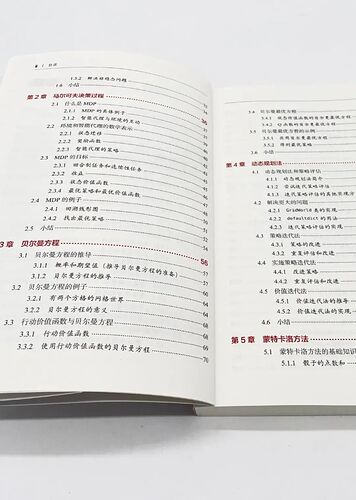 目录
1.5.2 解决非稳态问题
1.6 小结
第 2 章 马尔可夫决策过程
2.1 什么是 MDP
2.1.1 MDP 的具体例子
2.1.2 智能代理与环境的互动
2.2 环境和智能代理的数学表示
2.2.1 状态迁移
2.2.2 奖励函数
2.2.3 智能代理的策略
2.3 MDP 的目标
2.3.1 回合制任务和连续性任务
2.3.2 收益
2.3.3 状态价值函数
2.3.4 最优策略和最优价值函数
2.4 MDP 的例子
2.4.1 回溯线形图
2.4.2 找出最优策略
2.5 小结
3 章 贝尔曼方程 56
3.1 贝尔曼方程的推导 57
3.1.1 概率和期望值(推导贝尔曼方程的准备) 57
3.1.2 贝尔曼方程的推导
3.2 贝尔曼方程的例子
3.2.1 有两个方格的网格世界
3.2.2 贝尔曼方程的意义
3.3 行动价值函数与贝尔曼方程 68
3.3.1 行动价值函数 69
3.3.2 使用行动价值函数的贝尔曼方程 70
3.4 贝尔曼最优方程
3.4.1 状态价值函数的贝尔曼最优
3.4.2 Q 函数的贝尔曼最优方程
3.5 贝尔曼最优方程的示例
3.5.1 应用贝尔曼最优方程
3.5.2 得到最优策略
3.6 小结
第 4 章 动态规划法
4.1 动态规划法和策略评估
4.1.1 动态规划法简介
4.1.2 尝试迭代策略评估
4.1.3 迭代策略评估的其他实现方
4.2 解决更大的问题
4.2.1 GridWorld 类的实现
4.2.2 defaultdict 的用法
4.2.3 实现迭代策略评估
4.3 策略迭代法
4.3.1 策略的改进
4.3.2 重复评估和改进
4.4 实施策略迭代法
4.4.1 改进策略
4.4.2 重复评估和改进
4.5 价值迭代法
4.5.1 价值迭代法的推导
4.5.2 价值迭代法的实现
4.6 小结
第 5 章 蒙特卡洛方法
5.1 蒙特卡洛方法的基础知识
5.1.1 骰子的点数和